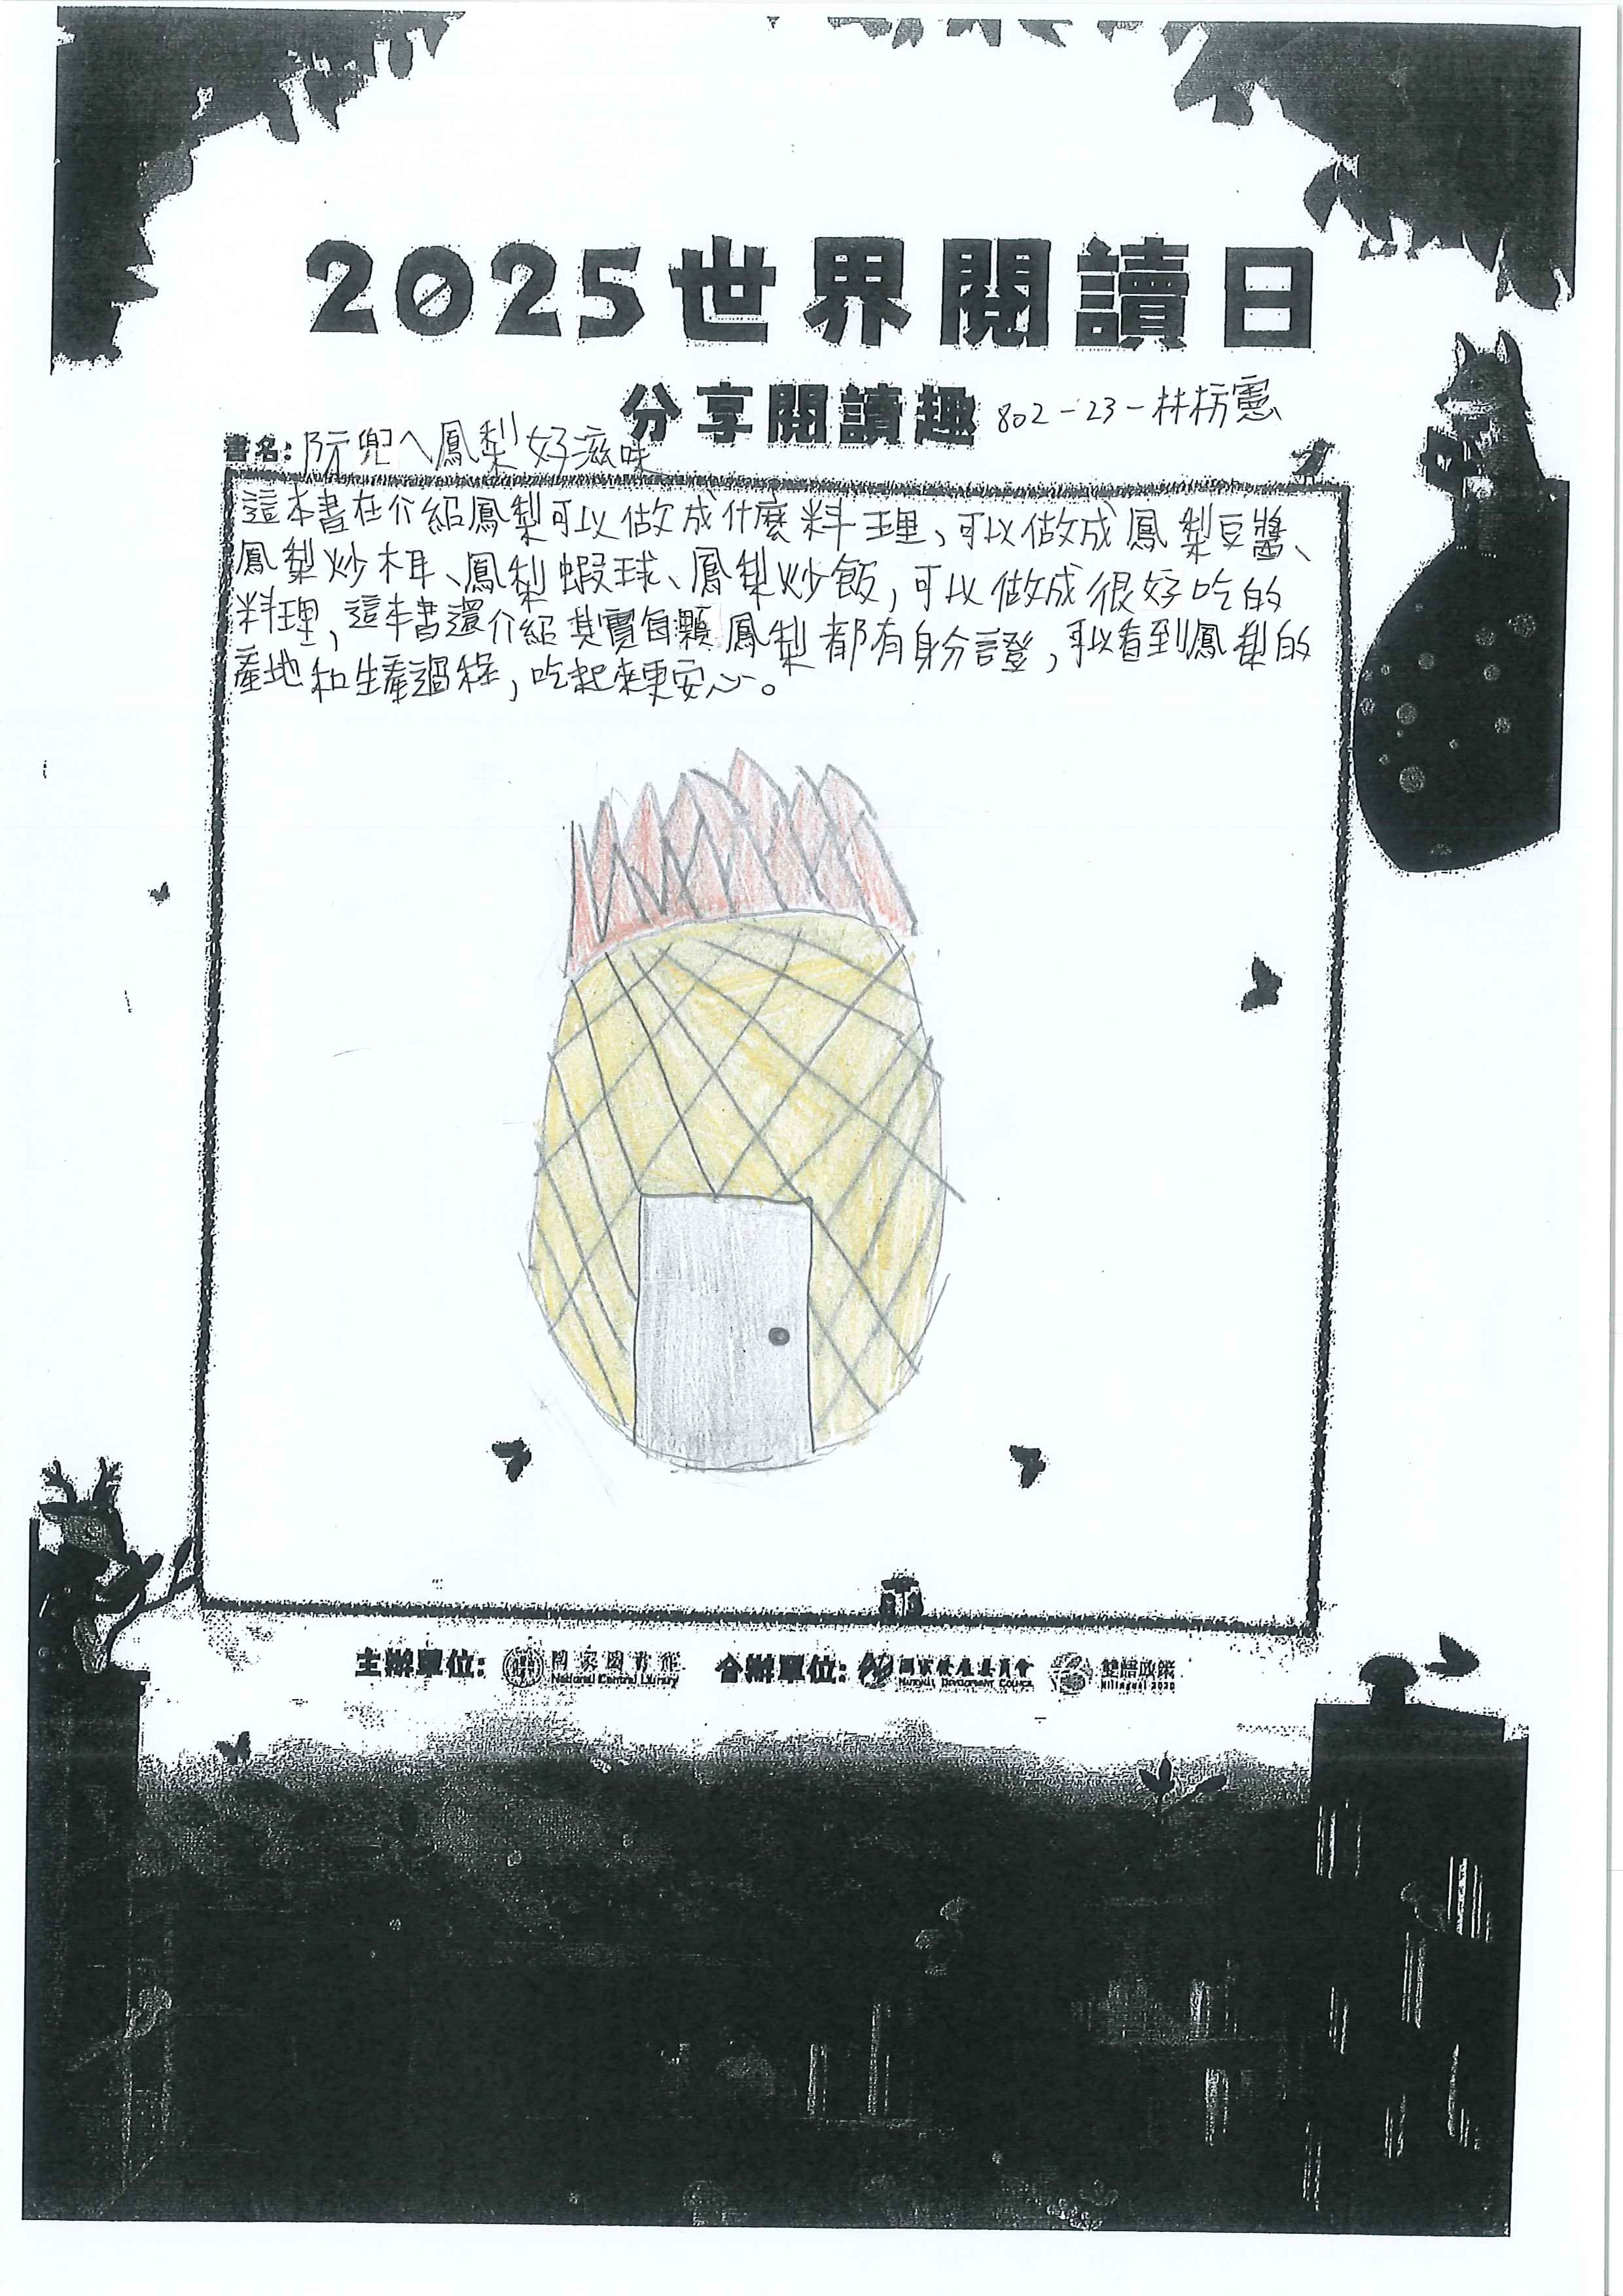 2025世界閱讀日
分享閱讀趣 802-23-林枋憲
書名:阮兜ㄟ鳳梨好滋味
這本書在介紹鳳梨可以做成什麼料理、可以做成鳳梨豆醬、
鳳梨炒木耳、鳳梨蝦球、鳳梨炒飯,可以做成很好吃的
料理,這本書還介紹其實每顆鳳梨都有身分證,可以看到鳳梨的
產地和生產過程,吃起來更安心。
主辦單位: 國家圖書館 National Central Library 合辦單位: 國家發展委員會 NATIONAL DEVELOPMENT COUNCIL 雙語政策 Bilingual 2030